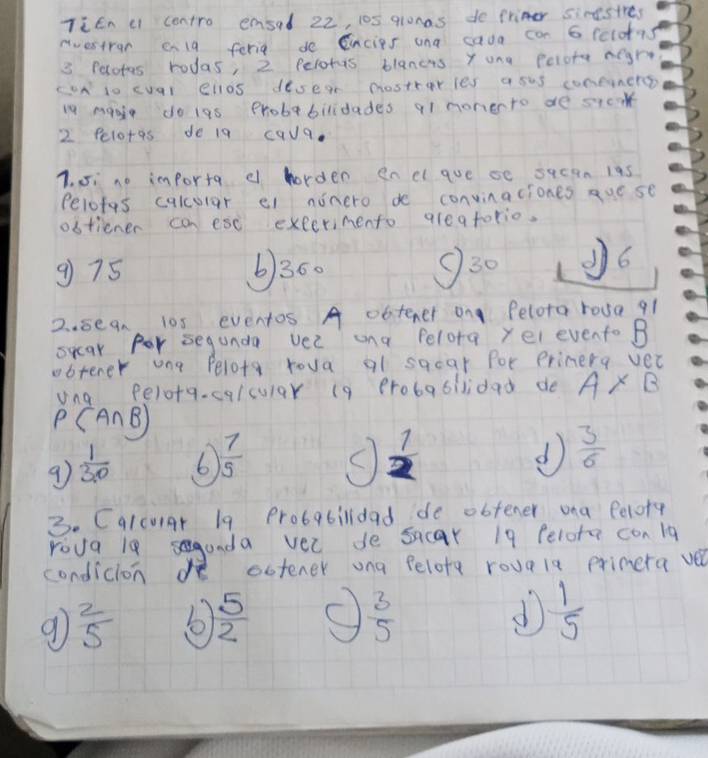 TiEn el centro emsad 22, los alunos de Primer simestres
muestran en la feria de Cincies una cava con 6 Pelotas
3 Pelotas rodas, 2 Pelotas blancas y una Pelota negra.
con lo cual ellos desean mostrar les a sus
la magia do las Probabilidades al momento de sacar
2 Pelotas de la cava.
1. Si no importa el horden en el que se sacan las
Pelotas calcular el número de convinaciones que se
obtienen con ese experimento aleatorio.
a) 15 b) 360 c) 30 d) 6
2. sean los eventos A obtener una Pelota rova al
sacar Por segunda vez una Pelota y el evento B
obtener una Pelota rova al sacar Por Primera vez
una Pelota. calcular la Probabilidad de A y B
P(A∩B)
a) 1/30 b) 1/5 c) 1/2 d) 3/6
3. Calcular la Probabilidad de obtener una Pelota
rova la segunda vez de sacar la Pelota con la
condición de obtener una Pelota rova la primera vez
a) 2/5 b) 5/2 c) 3/5 d) 1/5